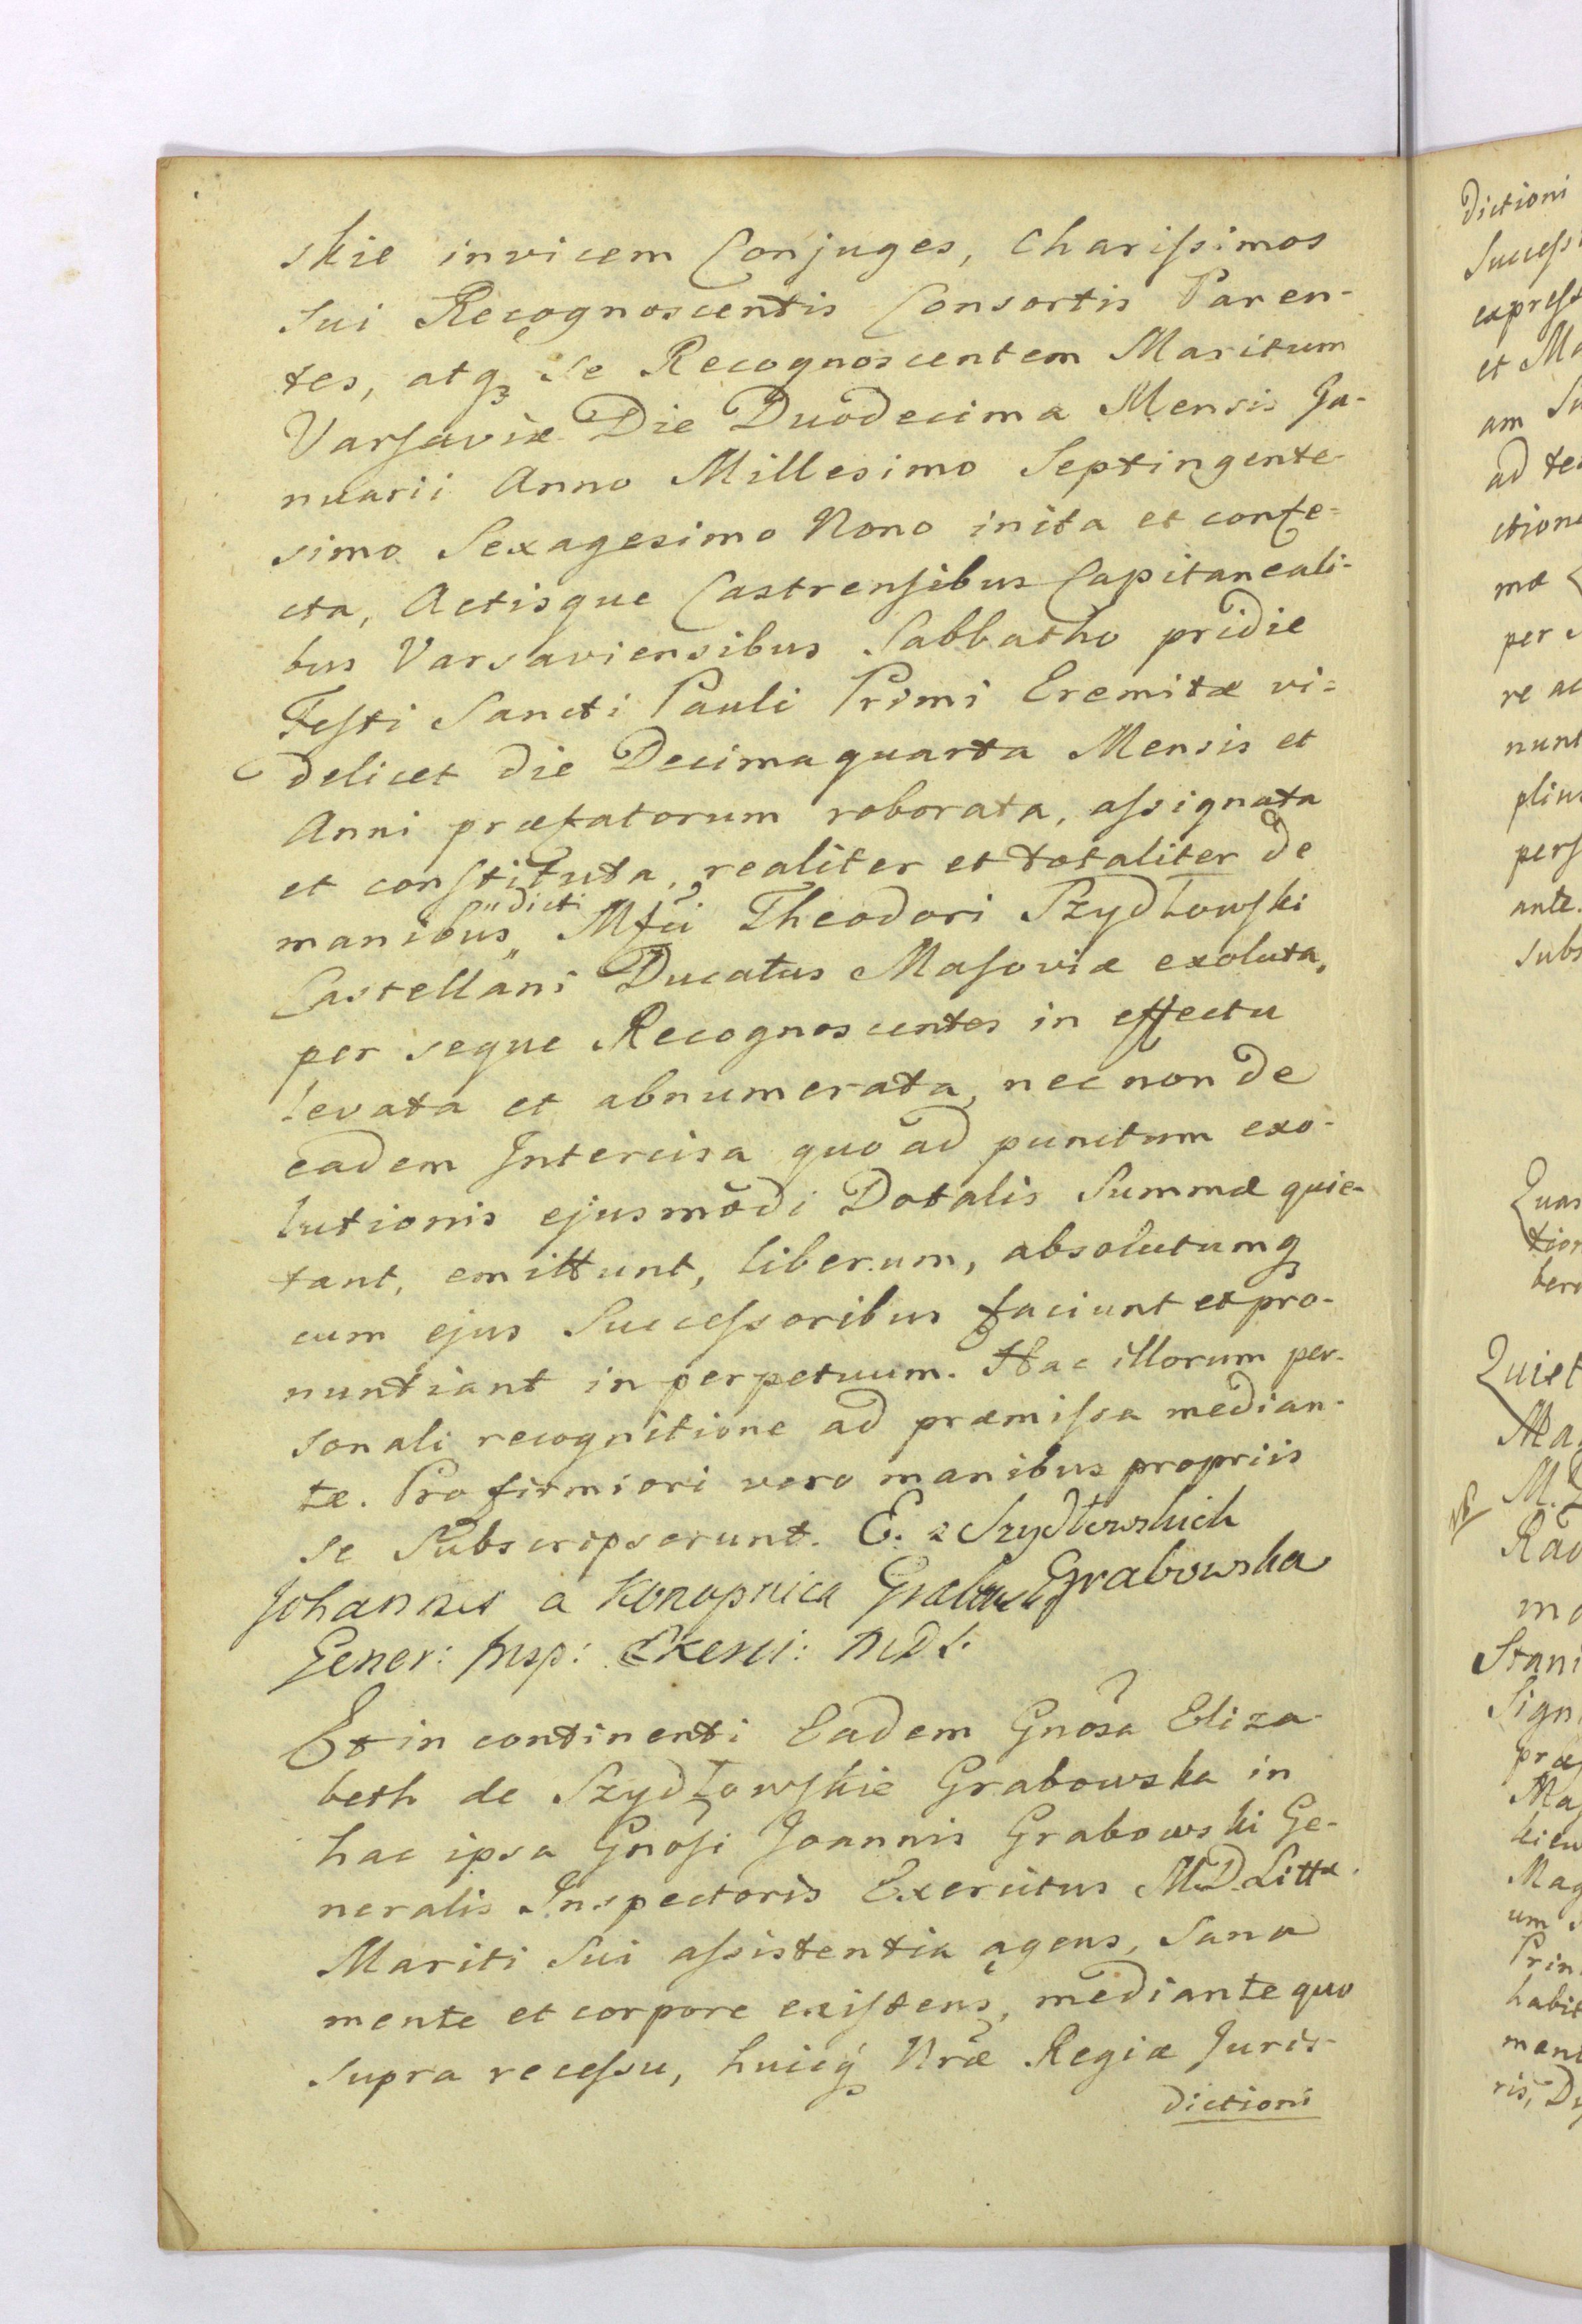 skie invicem Conjuges, Charissimos
sui Recognoscentis Consortis Paren-
tes, atq3 Se Recognoscentem Maritum
Varsaviæ Die Duodecima Mensis Ja-
nuarii Anno Millesimo Septingente-
simo Sexagesimo Nono inita et confe=
cta, Actisque Castrensibus Capitaneali-
bus Varsaviensibus Sabbatho pridie
Festi Sancti Pauli Primi Eremitæ vi=
delicet die Decimaquarta Mensis et
Anni præfatorum roborata, assignata
et constituta, realiter et totaliter de
"dicti
manibus" Mfci Theodori Szydłowski
Castellani Ducatus Masoviæ exoluta,
per seque Recognoscentes in effectu
levata et abnumerata, nec non de
eadem Intercisa quo ad punctum exo-
lutionis ejusmodi Dotalis Summæ quie-
tant, emittunt, liberum, absolutumq3
cum ejus Successoribus faciunt et pro-
nuntiant in perpetuum. Hac illorum per-
sonali recognitione ad præmissa median-
te. Pro firmiori vero manibus propriis
se Subscripserunt. E. z Szydłowskich
Johannes a Konopnica Grabowski Grabowska
Gener: Insp: Exerci: MDL.
Et in continenti Eadem Gnosa Eliza-
beth de Szydłowskie Grabowska in
hac ipsa Gnosi Joannis Grabowski Ge-
neralis Inspectoris Exercitus M.D. Littæ
Mariti Sui assistentia agens, Sana
mente et corpore existens, mediante quo
supra recessu, huicq3 Nræ Regiæ Juris-
dictioni
dictioni
Success
express
et Ma
am Su
ad te
ctione
mæ
per
re ac
nunt
plius
pers
ante.
subs
Quas
tion
ber
Quiet
Ma
M.
Stani
Sign
præ
Mag
um
Prin
habit
mani
ris,